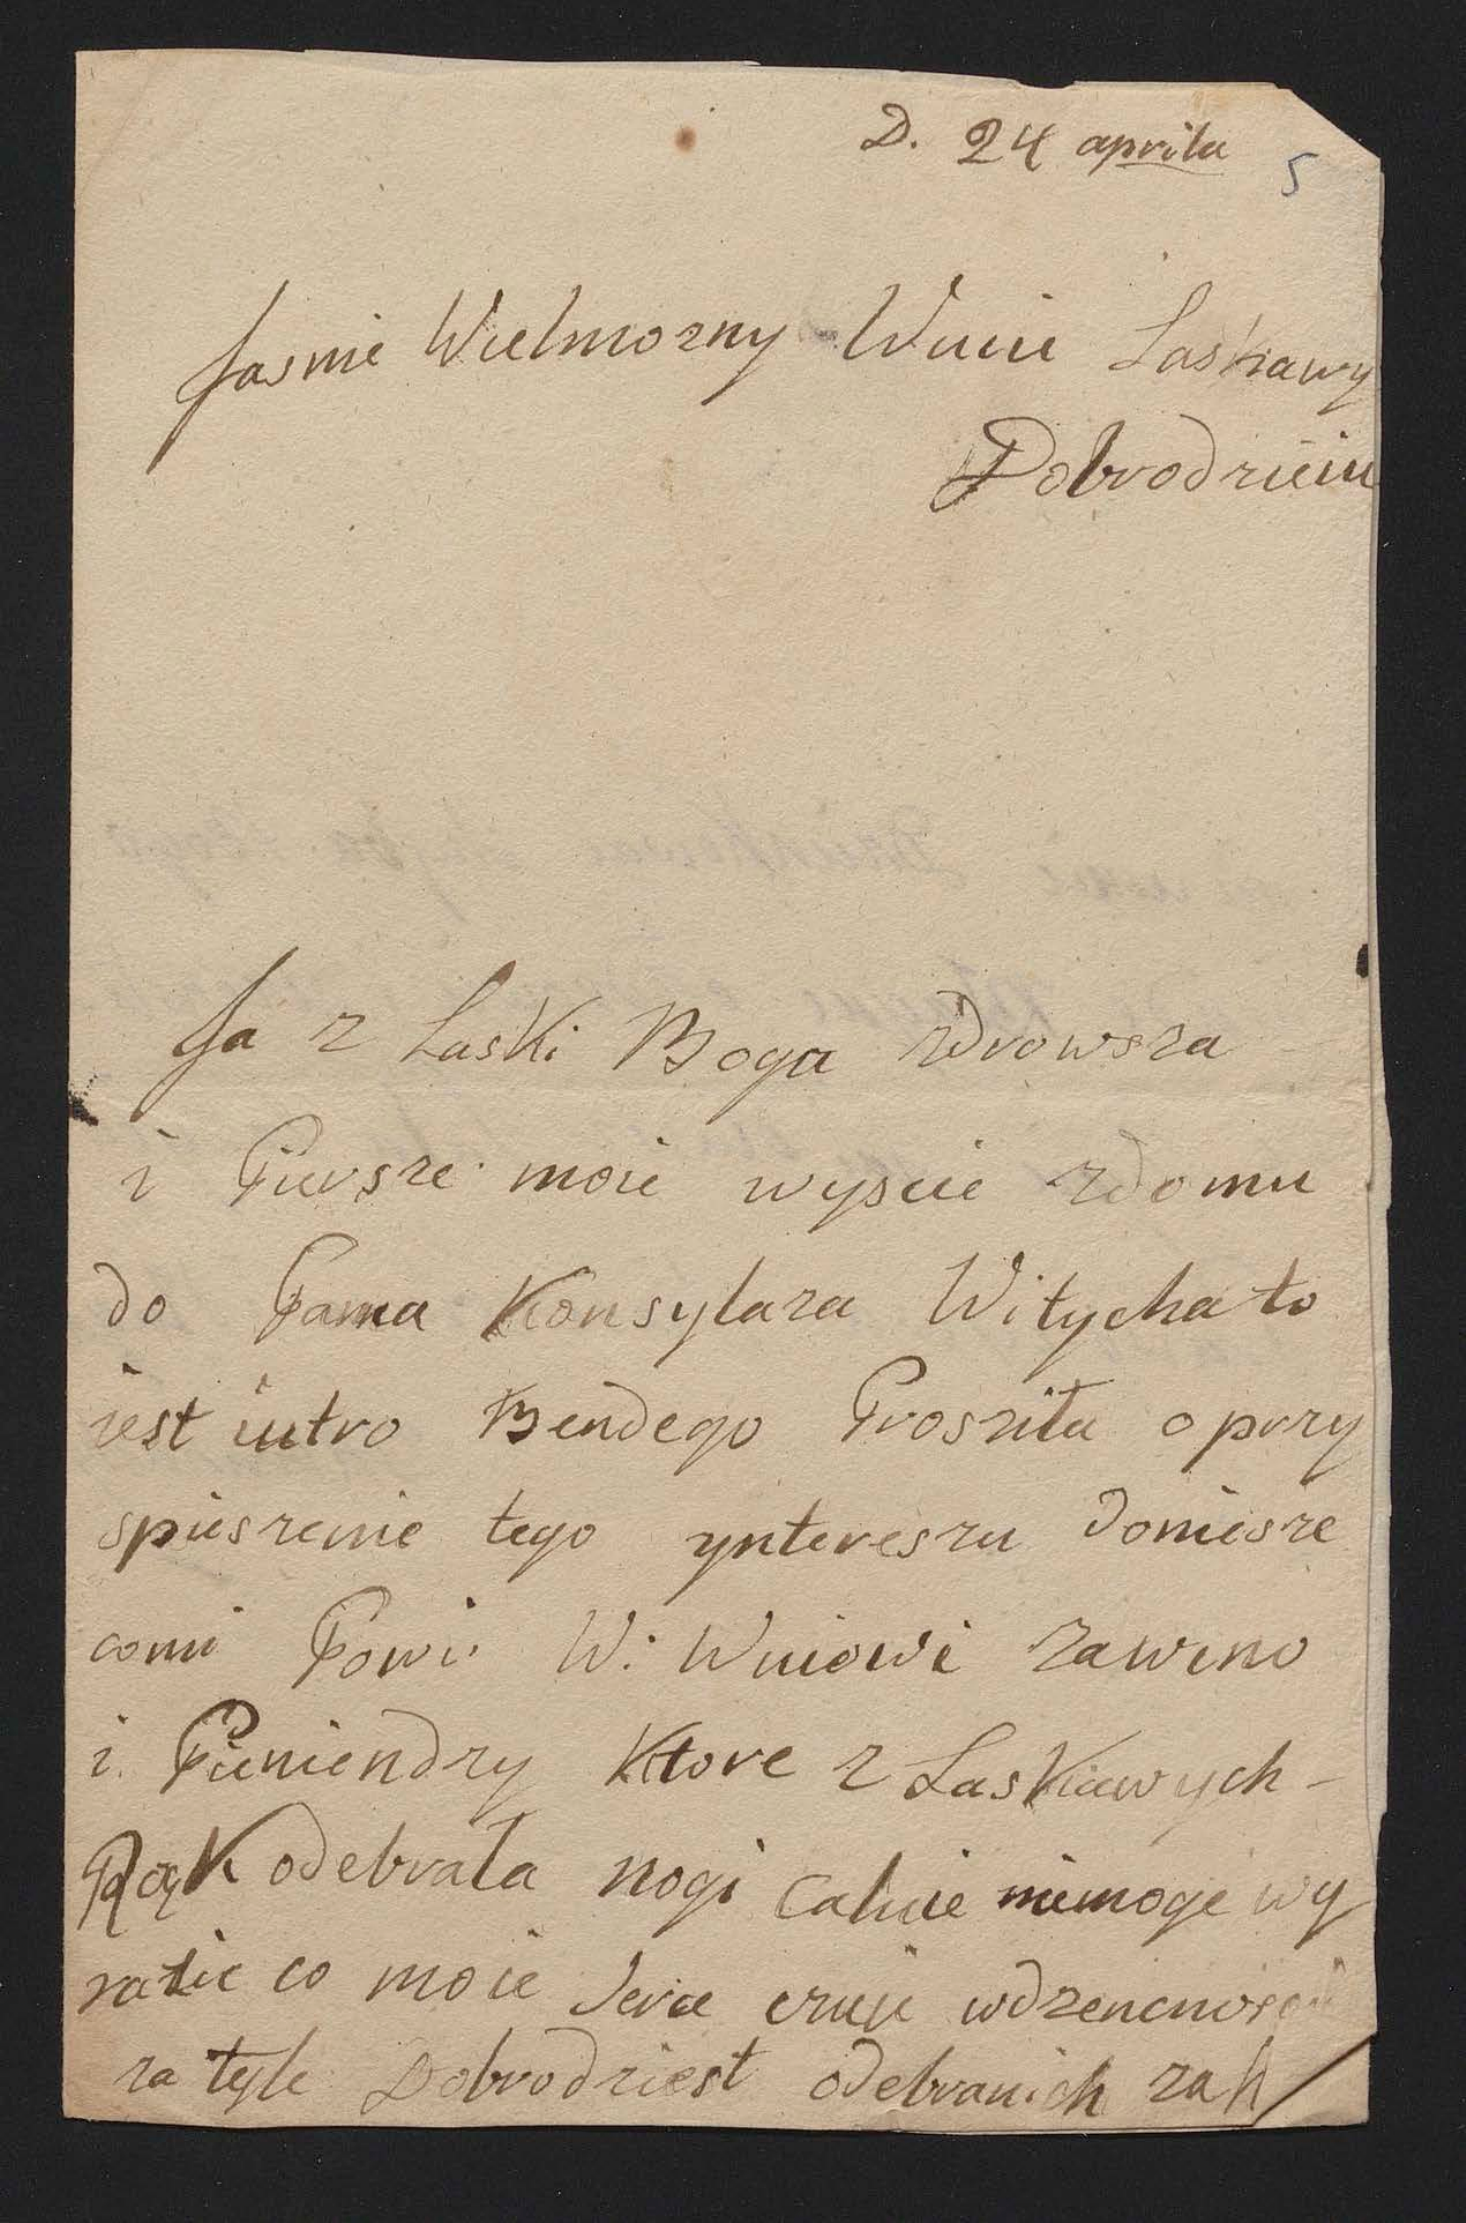 D. 24 aprila 5
Jasnie Wielmozny Wuiu Laskawy
Dobrodzieiu
Ja z Laski Boga zdrowsza
i Piersze moie wyscie zdomu
do Pama Konsylaza Witycha to
iest iutro Bendego Prosziła o przy
spieszenie tego ynteresszu doniesze
comi Powi W: Wuiowi zawzno
i Pieniendzy Ktore z Laskawych -
Rąk odebrała nogi Całuie niemoge wy
razic co moie Serce czuie wdzencnosci
za tyle Dobrodziest odebranich